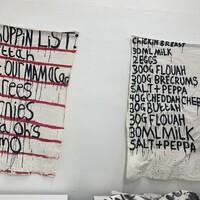 OPPIN LIST!
UTTAH
T OUT MAMA COO
REES
NNIES
A OH'S
MO
CHICKIN BREAST
30ML MILK
2 EGGS
300G FLOUAH
300G BRECRUMS
SALT + PEPPA
40G CHEDDAH CHEE
30G BUTTAH
30G FLOUAH
30ML MILK
SALT + PEPPA